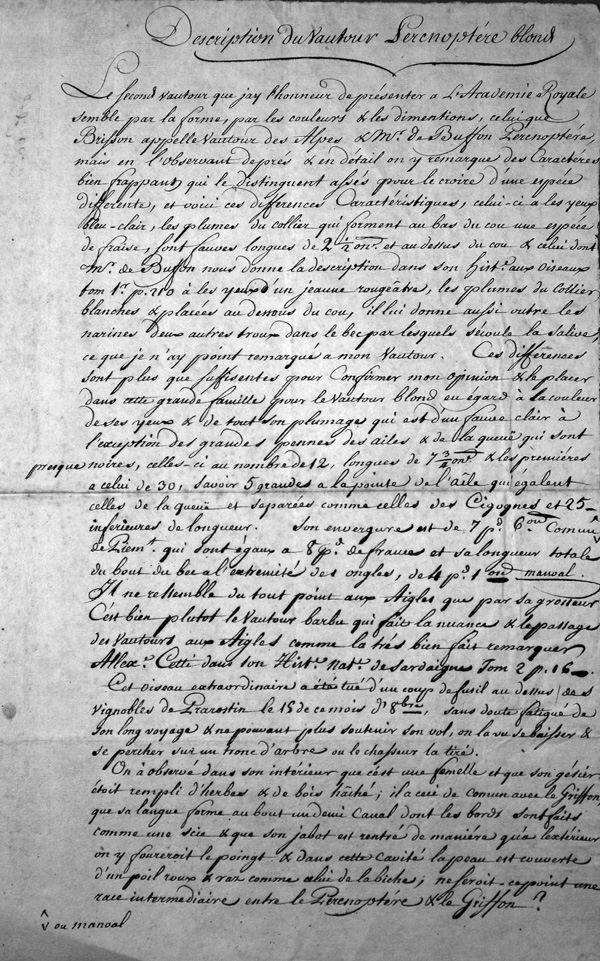 Description du Vautour Percnoptére blond
Le second vautour que jay l'honneur de présenter a L'Academie Royale
semble par la forme, par les couleurs & les dimentions, celui que
Brisson appelle Vautour des Alpes & Mr. de Buffon Percnoptére,
mais en l'observant deprés & en détail on y remarque des Caractéres
bien frappants qui le distinguent assés pour le croire d'une espéce
differente, et voici ces differences Caractéristiques, celui-ci a les yeux
bleu-clair, les plumes du collier qui forment au bas du cou une espéce
de fraise, sont fauves longues de 2 1/2 onc. et au dessus du cou & celui dont
Mr. de Buffon nous donne la description dans son hist.e aux oiseaux
tom 1.r p. 210 à les yeux d'un jeaune rougeâtre, les plumes du Collier
blanches & placées au dessous du cou, il lui donne aussi outre les
narines deux autres troux dans le bec par lesquels s'écoule la salive,
ce que je n'ay point remarqué a mon Vautour. Ces differences
sont plus que suffisentes pour Confirmer mon opinion & le placer
dans cette grande famille pour le Vautour blond eu égard à la couleur
de ses yeux & de tout son plumage qui est d'un fauve clair à
l'exception des grandes pennes des ailes & de la queuë qui sont
presque noires, celles-ci au nombre de 12, longues de 7 3/4 onc. & les premiéres
a celui de 30, savoir 5 grandes a la pointe de l'aîle qui égalent
celles de la queuë et separées comme celles des Cigognes et 25
inferieures de longueur. Son envergure est de 7 p.d 6 onc Comun
de Piem.t qui sont égaux a 8 p.d de france et sa longueur totale
du bout du bec a l'extremité des ongles, de 4 p.d 1 onc manual.
Il ne resemble du tout point aux Aigles que par sa grosseur
C'est bien plutot le Vautour barbu qui fait la nuance & le passage
des Vautours aux Aigles comme la trés bien fait remarquer
Allex.e Cetti dans son Hist.e Nat.e de Sardaigne Tom 2 p. 16
Cet oiseau extraordinaire a été tué d'un coup de fusil au dessus des
vignobles de Prarostin le 15 de ce mois d'8bre, sans doute fatigué de
son long voyage & ne pouvant plus soutenir son vol, on la vu se baisser &
se percher sur un tronc d'arbre ou le chasseur la tiré.
On à observé dans son intérieur que c'ést une femelle et que son gésier
étoit rempli d'herbes & de bois hâché; il a ceci de comun avec le Griffon,
que sa langue forme au bout un demi Canal dont les bords sont faits
comme une scie & que son jabot est rentré de maniére qu'a l'extérieur
on y foureroit le poingt & dans cette Cavité la peau est couverte
d'un poil roux & raz comme celui de la biche; ne seroit-ce point une
race intermediaire entre le Percnoptére & le Griffon?
ou manual